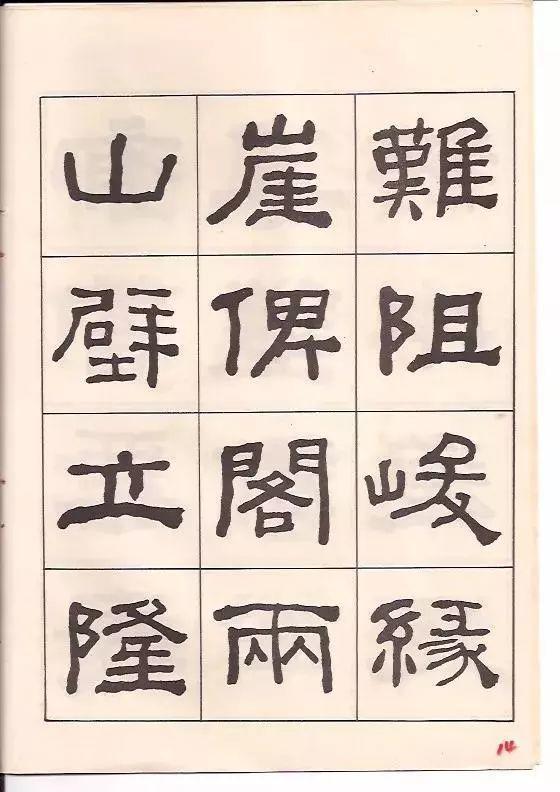 難阻峻緣
崖俾閣兩
山壁立隆
14